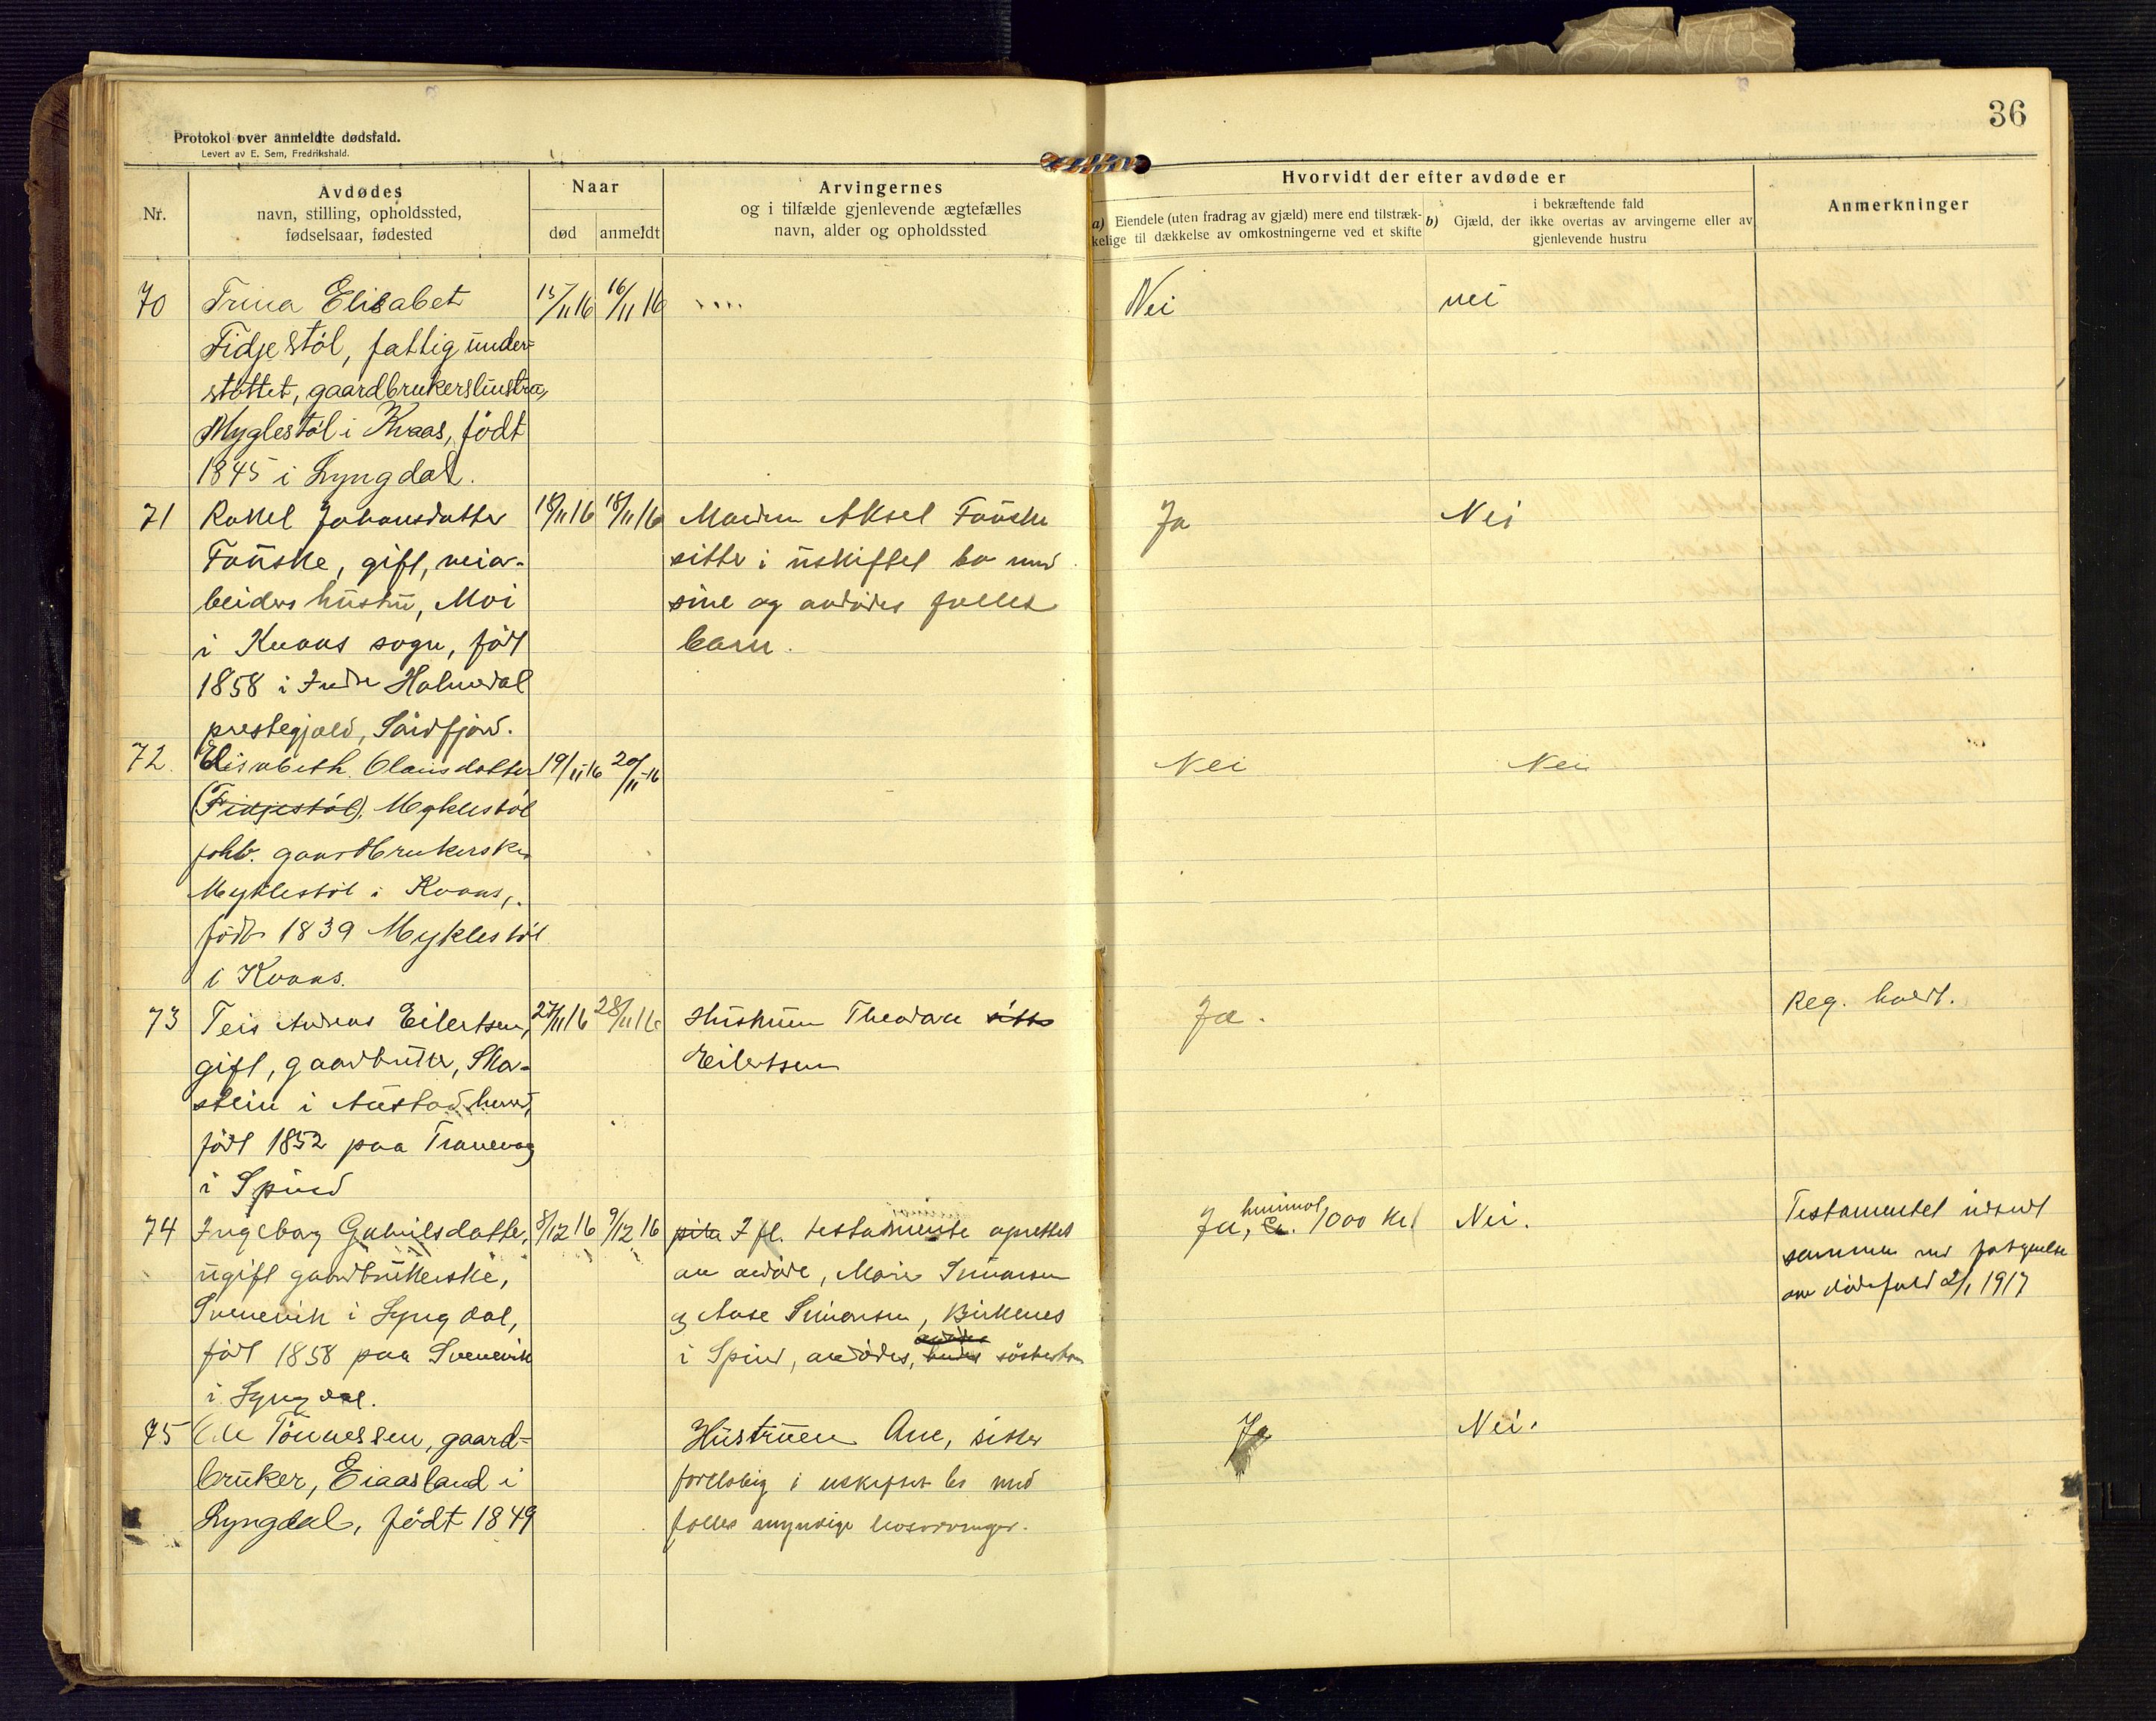 36
Protokol over anmeldte dødsfald.
Levert av E. Sem, Fredrikshald.
Nr.
Avdødes
navn, stilling, opholdssted,
fødselsaar, fødested
Naar
død
anmeldt
Arvingernes
og i tilfælde gjenlevende ægtefælles
navn, alder og opholdssted
Hvorvidt der efter avdøde er
a) Eiendele (uten fradrag av gjæld) mere end tilstræk-
kelige til dækkelse av omkostningerne ved et skifte
i bekræftende fald
b) Gjæld, der ikke overtas av arvingerne eller av
gjenlevende hustru
Anmerkninger
70 Trina Elisabet 15/11 16 16/11 16 Nei nei
Fidjestöl, fattigunder=
stöttet, gaardbrukershustru,
Myglestöl i Kvaas, födt
1845 i Lyngdal.
71 Rakel Johansdatter 18/11 16 18/11 16 Manden Aksel Fauske Ja Nei
Fauske, gift, veiar- sitter i uskiftet bo med
beiders hustru, Moi sine og avdödes fælles
i Kvaas sogn, födt barn.
1858 i Indre Holmedal
prestegjæld, Söndfjord.
72. Elisabeth Olausdatter 19/11-16 20/11-16 Nei Nei
(Fidjestöl), Myklestöl
fhv. gaardbrukerske
Myklestöl i Kvaas,
födt 1839 Myklestöl
i Kvaas.
73 Teis Andreas Eilertsen, 27/11 16 28/11 16 Hustruen Theodora sitter Ja. Reg. holdt.
gift, gaardbruker, Ska- Eilertsen
stein i Austad herred,
födt 1852 paa Tranevag
i Spind
74 Ingeborg Gabrielsdatter, 8/12 16 9/12 16 I fl. testamente oprettet Ja, 1000 kr Nei. Testamentet indsendt
ugift gaardbrukerske, av avdöde, Marie Simonsen sammen med
Svenevik i Lyngdal, og Aase Simonsen, Birkenes om dödsfald 2/1 1917
födt 1858 paa Svenevik i Spind, avdödes, avdödes
i Lyngdal.
75 Ole Tönnessen, gaard= Hustruen Ane, sitter Ja Nei.
bruker, Eiaasland i forelöbig i uskiftet bo med
Lyngdal, födt 1849 fælles myndige livsarvinger.